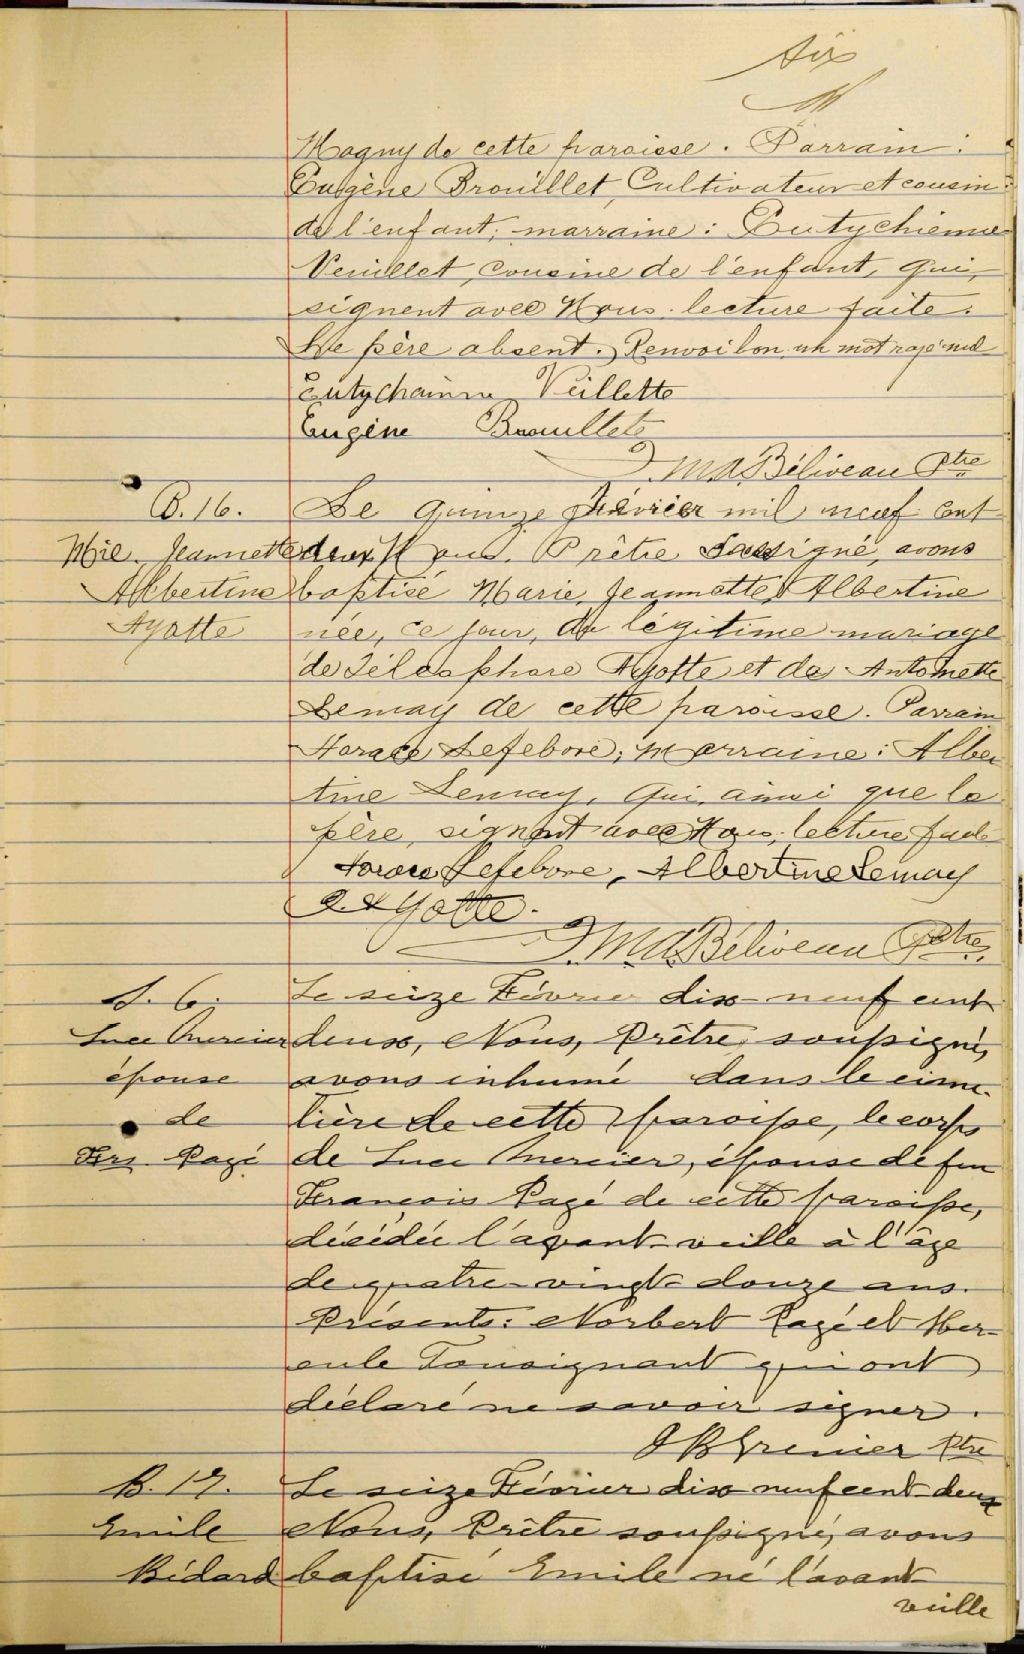 six
Magny de cette paroisse. Parrain:
Eugène Brouillet, Cultivateur et cousin
de l'enfant; marraine: Eutychienne
Veuillet, Cousine de l'enfant, qui,
signent avec Nous. lecture faite.
Le père absent. Renvoi bon, un mot rayé nul
Eutychainne Veillette
Eugène Brouillets
J. M. A. Béliveau Ptre
B. 16.
Mie, Jeannette
Albertine
Ayotte
Le quinze Février mil neuf cent
deux, Nous, Prêtre soussigné, avons
baptisé Marie, Jeannette, Albertine
née, ce jour, du légitime mariage
de Télesphore Ayotte et de Antoinette
Lemay de cette paroisse. Parrain
Horace Lefebvre; marraine: Alber
tine Lemay, qui, ainsi que le
père, signent avec Nous, lecture faite
Horace Lefebvre, Albertine Lemay
Ayotte.
J. M. A. Béliveau Ptre,
S. 6.
Luce Mercier
épouse
de
Frs. Pagé
Le seize Février dix-neuf cent
deux, Nous, Prêtre, soussigné,
avons inhumé dans le cime-
tière de cette paroisse, le corps
de Luce Mercier, épouse de feu
François Pagé de cette paroisse,
décédée l'avant-veille à l'âge
de quatre-vingt-douze ans.
Présents: Norbert Pagé et Her-
cule Tousignant qui ont
déclaré ne savoir signer.
J B Grenier Ptre
B. 17.
Emile
Bédard
Le seize Février dix-neuf cent-deux
Nous, Prêtre soussigné, avons
baptisé Emile né l'avant-
veille